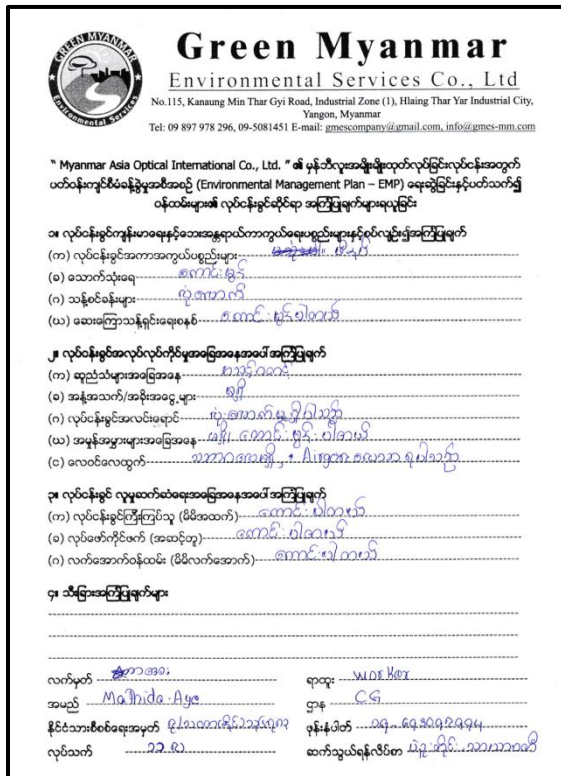 GREEN MYANMAR
Environmental Services
Green Myanmar
Environmental Services Co., Ltd
No.115, Kanaung Min Thar Gyi Road, Industrial Zone (1), Hlaing Thar Yar Industrial City,
Yangon, Myanmar
Tel: 09 897 978 296, 09-5081451 E-mail: gmescompany@gmail.com, info@gmes-mm.com
" Myanmar Asia Optical International Co., Ltd. " ၏ မှန်ဘီလူးအမျိုးမျိုးထုတ်လုပ်ခြင်းလုပ်ငန်းအတွက်
ပတ်ဝန်းကျင်စီမံခန့်ခွဲမှုအစီအစဉ် (Environmental Management Plan – EMP) ရေးဆွဲခြင်းနှင့်ပတ်သက်၍
ဝန်ထမ်းများ၏ လုပ်ငန်းခွင်ဆိုင်ရာ အကြံပြုချက်များရယူခြင်း
၁။ လုပ်ငန်းခွင်ကျန်းမာရေးနှင့်ဘေးအန္တရာယ်ကာကွယ်ရေးပစ္စည်းများနှင့်စပ်လျဉ်း၍အကြံပြုချက်
(က) လုပ်ငန်းခွင်အကာအကွယ်ပစ္စည်းများ
(ခ) သောက်သုံးရေ ကောင်းမွန်
(ဂ) သန့်စင်ခန်းများ လုံလောက်
(ဃ) ဆေးကြောသန့်ရှင်းရေးစနစ် ကောင်းမွန်ပါတယ်
၂။ လုပ်ငန်းခွင်အလုပ်လုပ်ကိုင်မှုအခြေအနေအပေါ် အကြံပြုချက်
(က) ဆူညံသံများအခြေအနေ အသင့်တင့်
(ခ) အနံ့အသက်/အခိုးအငွေ့များ မရှိ
(ဂ) လုပ်ငန်းခွင်အလင်းရောင် လုံလောက်မှုရှိပါသည်
(ဃ) အမှုန်အမွှားများအခြေအနေ မရှိ၊ ကောင်းမွန်ပါတယ်
(င) လေဝင်လေထွက် Aircon ရပါသည်
၃။ လုပ်ငန်းခွင် လူမှုဆက်ဆံရေးအခြေအနေအပေါ် အကြံပြုချက်
(က) လုပ်ငန်းခွင်ကြီးကြပ်သူ (မိမိအထက်) ကောင်းပါတယ်
(ခ) လုပ်ဖော်ကိုင်ဖက် (အဆင့်တူ) ကောင်းပါတယ်
(ဂ) လက်အောက်ဝန်ထမ်း (မိမိလက်အောက်) ကောင်းပါတယ်
၄။ သီးခြားအကြံပြုချက်များ
လက်မှတ် ရာထူး worker
အမည် Ma Thida Aye ဌာန CG
နိုင်ငံသားစိစစ်ရေးအမှတ် ဖုန်းနံပါတ်
လုပ်သက် ဆက်သွယ်ရန်လိပ်စာ